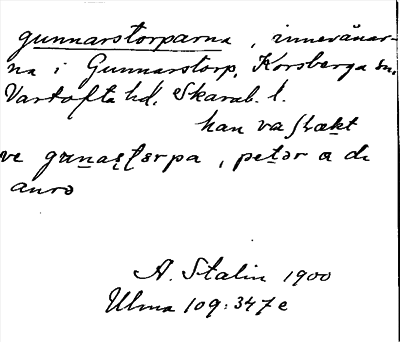 gunnarstorparna, innevånar-
na i Gunnarstorp, Korsberga sn,
Vartofta hd, Skarab. l.
han va
ve , petər a di
aurə
A. Stalin 1900
Ulma 109:347 e